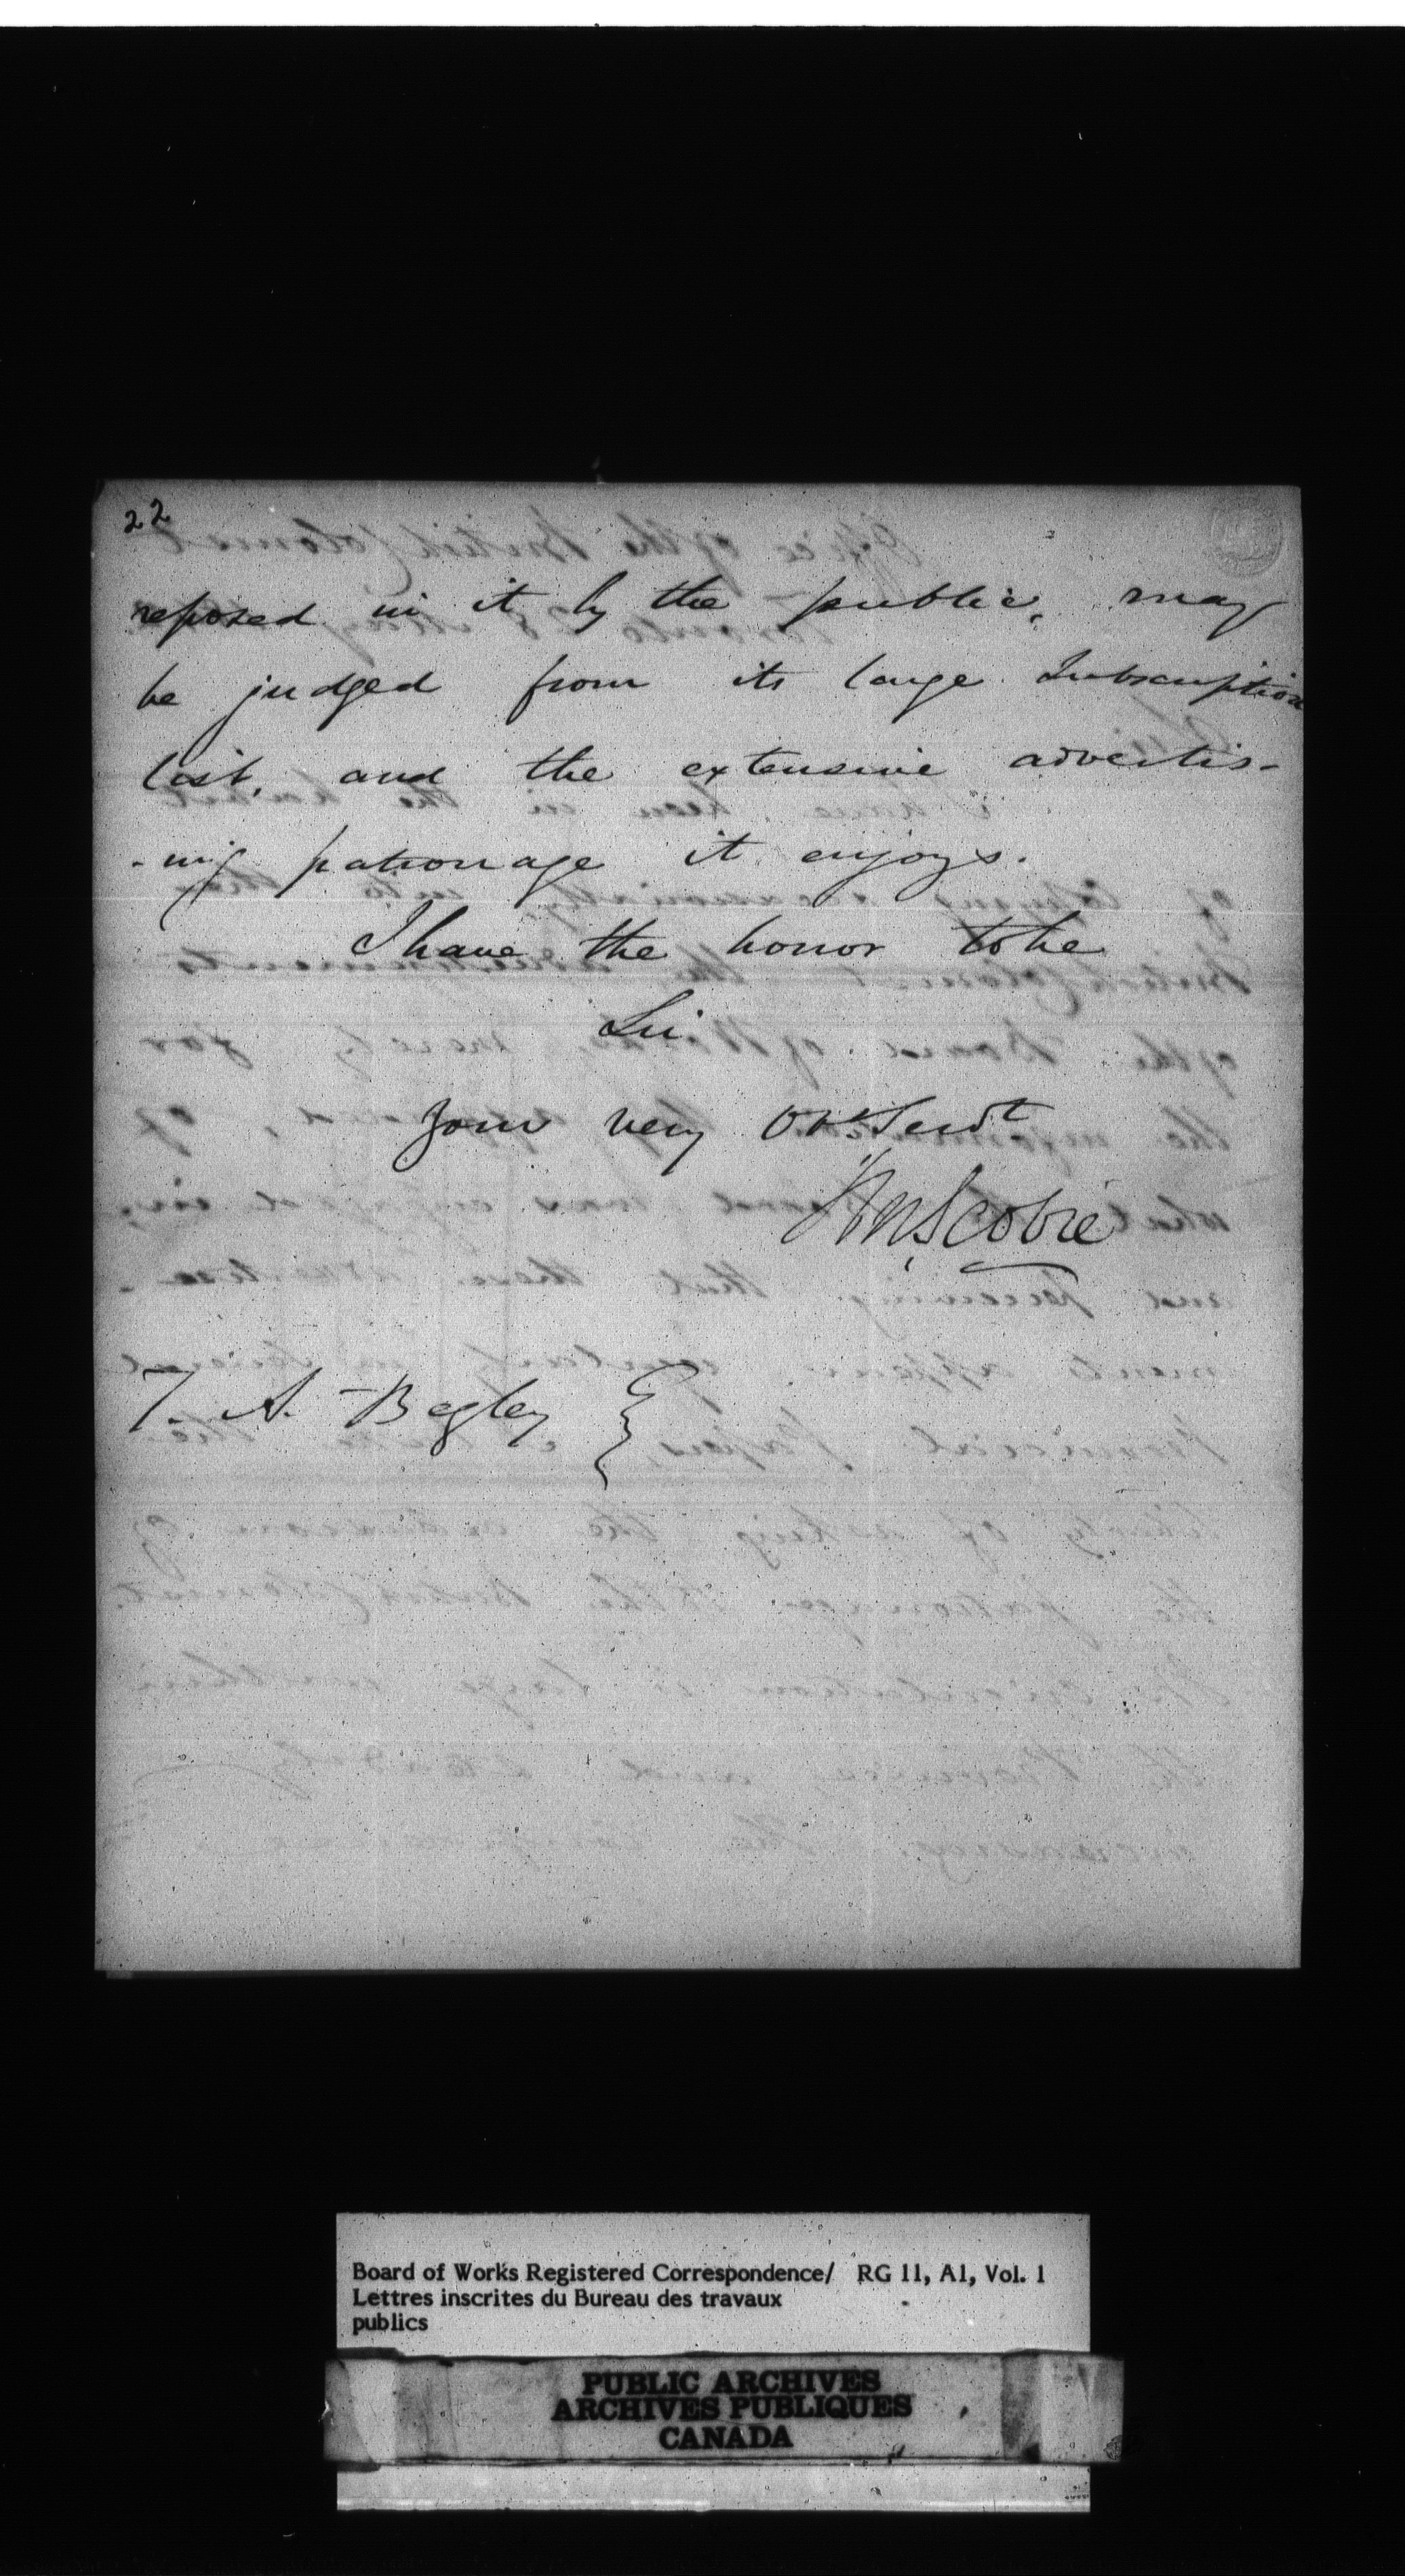 22
reposed in it by the public, may
be judged from its large Subscription
list, and the extensive advertis-
-ing patronage it enjoys.
I have the honor to be
Sir
Your very Obt Servt
Scobie
T. A. Begley
Board of Works Registered Correspondence/ RG 11, A1, Vol. 1
Lettres inscrites du Bureau des travaux
publics
PUBLIC ARCHIVES
ARCHIVES PUBLIQUES
CANADA